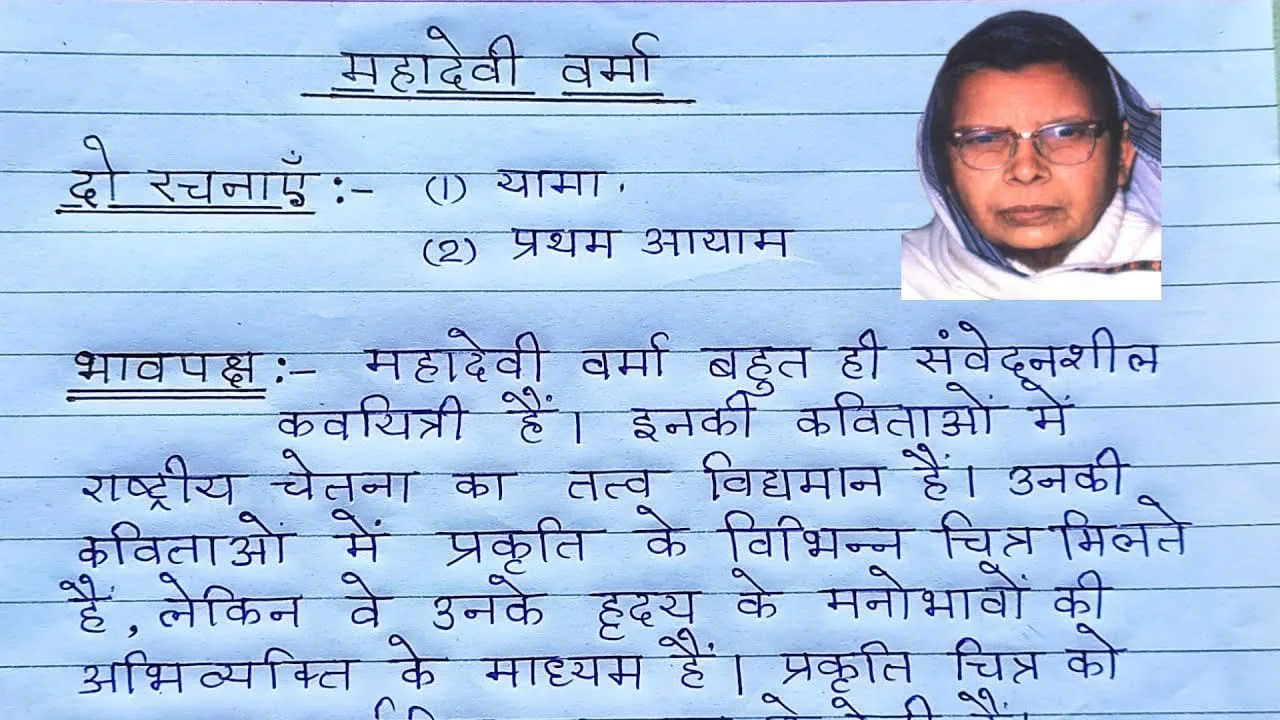 महादेवी वर्मा
दो रचनाएँ :- (1) यामा.
(2) प्रथम आयाम
भावपक्ष :- महादेवी वर्मा बहुत ही संवेदनशील
कवयित्री हैं। इनकी कविताओं में
राष्ट्रीय चेतना का तत्व विद्यमान हैं। उनकी
कविताओं में प्रकृति के विभिन्न चित्र मिलते
हैं, लेकिन वे उनके हृदय के मनोभावों की
अभिव्यक्ति के माध्यम हैं। प्रकृति चित्र को